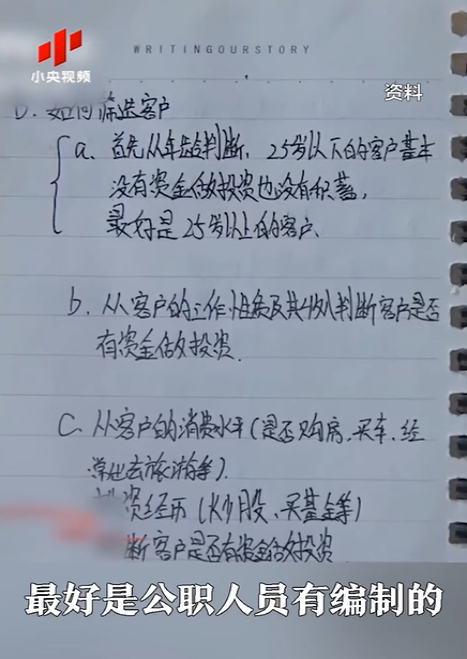 小央视频
WRITINGOURSTORY
资料
D. 如何筛选客户
a. 首先从年龄判断, 25岁以下的客户基本
没有资金做投资也没有积蓄,
最好是25岁以上的客户.
b. 从客户的工作性质及其收入判断客户是否
有资金做投资.
C. 从客户的消费水平(是否购房、买车、经
常出去旅游等).
投资经历(炒股、买基金等)
断客户是否有资金做投资
最好是公职人员有编制的